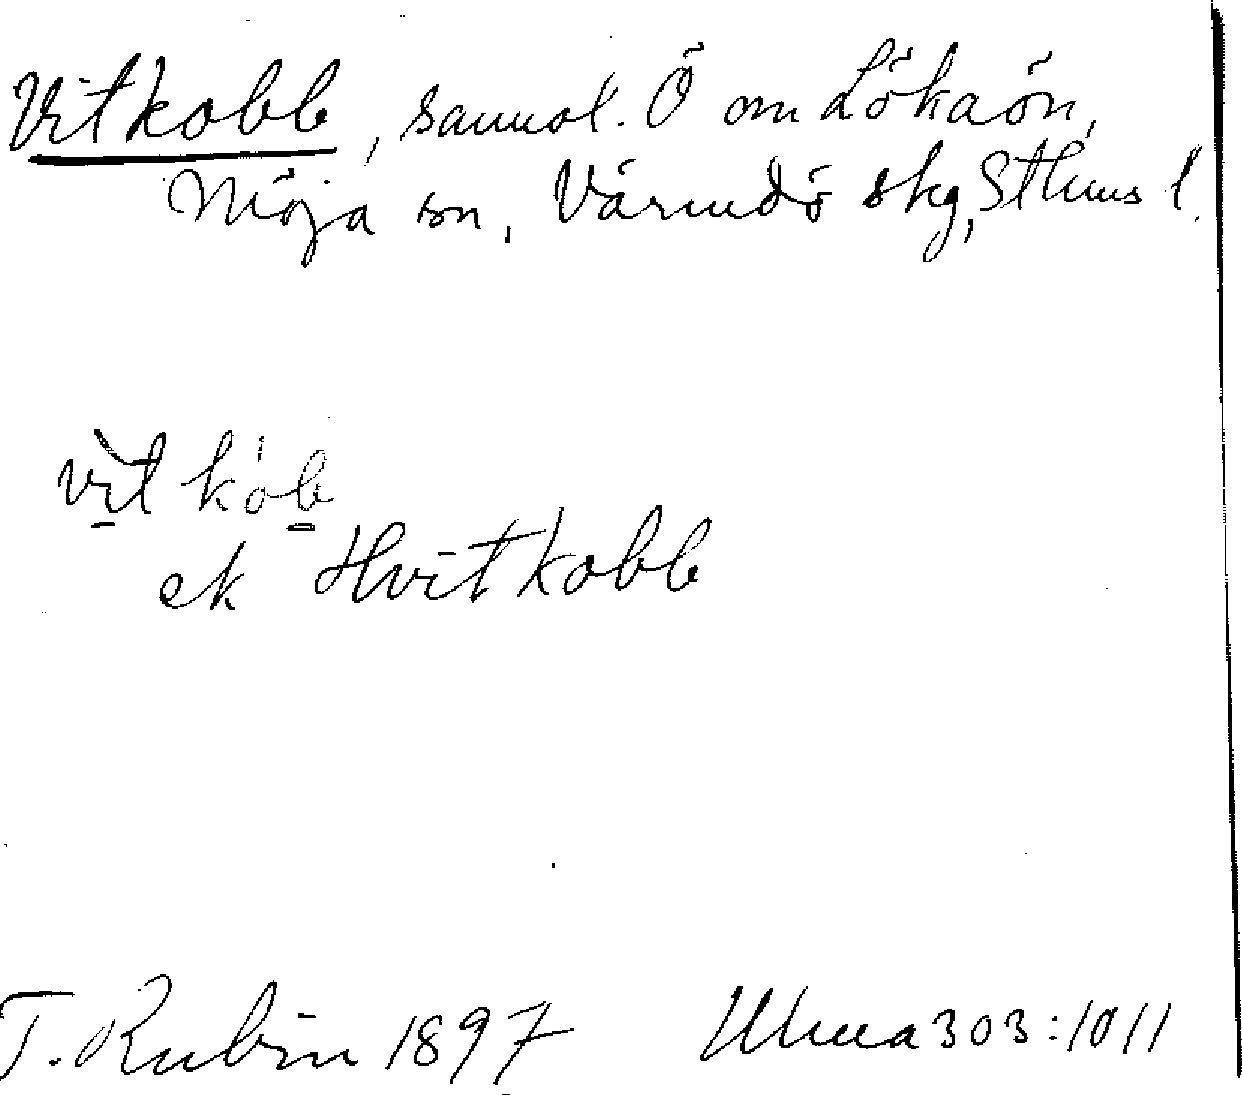 Vitkobb, samnot. Ö om Lökaön,
Möja sn, Värmdö skg, Sthms l.
vit kob
ek Hvitkobb
T. Rubin 1897 Uhua 303:1011